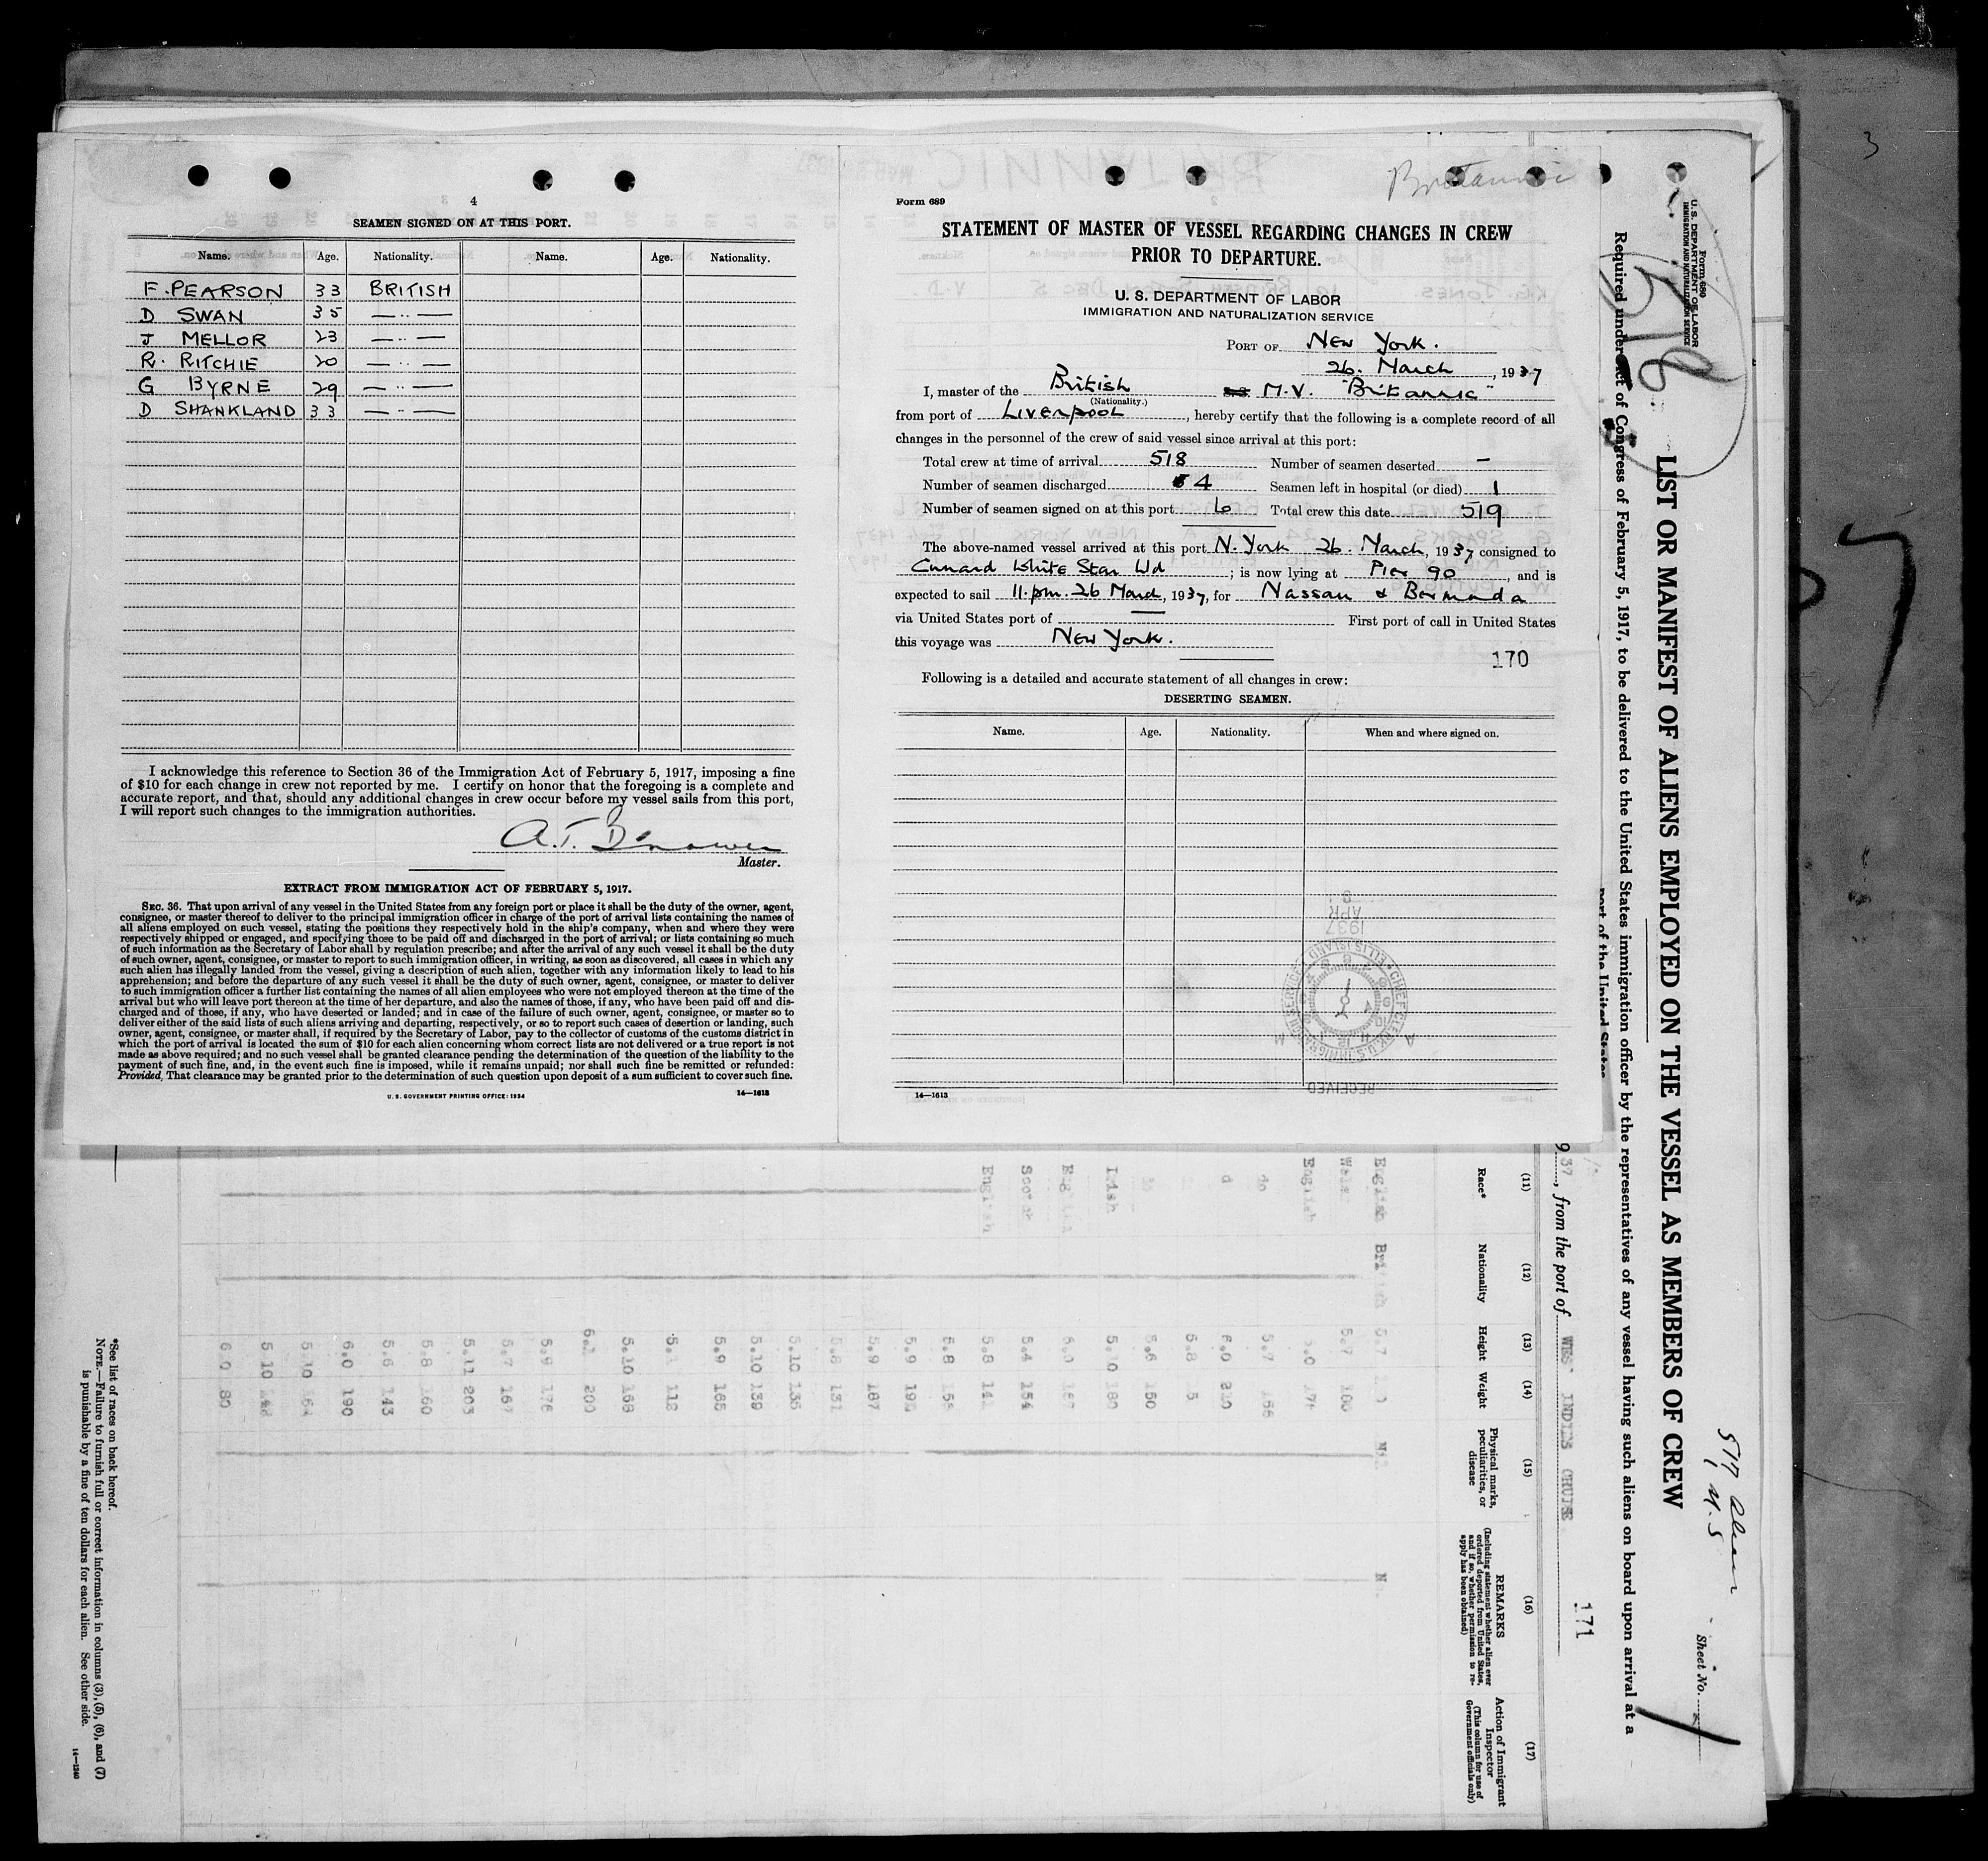 4
SEAMEN SIGNED ON AT THIS PORT.
Name. Age. Nationality. Name. Age. Nationality.
F. PEARSON 33 BRITISH
D SWAN 35 — " —
J MELLOR 23 — " —
R. RITCHIE 20 — " —
G BYRNE 29 — " —
D SHANKLAND 33 — " —
I acknowledge this reference to Section 36 of the Immigration Act of February 5, 1917, imposing a fine
of $10 for each change in crew not reported by me. I certify on honor that the foregoing is a complete and
accurate report, and that, should any additional changes in crew occur before my vessel sails from this port,
I will report such changes to the immigration authorities.
A.T.
Master.
EXTRACT FROM IMMIGRATION ACT OF FEBRUARY 5, 1917.
SEC. 36. That upon arrival of any vessel in the United States from any foreign port or place it shall be the duty of the owner, agent,
consignee, or master thereof to deliver to the principal immigration officer in charge of the port of arrival lists containing the names of
all aliens employed on such vessel, stating the positions they respectively hold in the ship's company, when and where they were
respectively shipped or engaged, and specifying those to be paid off and discharged in the port of arrival; or lists containing so much
of such information as the Secretary of Labor shall by regulation prescribe; and after the arrival of any such vessel it shall be the duty
of such owner, agent, consignee, or master to report to such immigration officer, in writing, as soon as discovered, all cases in which any
such alien has illegally landed from the vessel, giving a description of such alien, together with any information likely to lead to his
apprehension; and before the departure of any such vessel it shall be the duty of such owner, agent, consignee, or master to deliver
to such immigration officer a further list containing the names of all alien employees who were not employed thereon at the time of the
arrival but who will leave port thereon at the time of her departure, and also the names of those, if any, who have been paid off and dis-
charged and of those, if any, who have deserted or landed; and in case of the failure of such owner, agent, consignee, or master so to
deliver either of the said lists of such aliens arriving and departing, respectively, or so to report such cases of desertion or landing, such
owner, agent, consignee, or master shall, if required by the Secretary of Labor, pay to the collector of customs of the customs district in
which the port of arrival is located the sum of $10 for each alien concerning whom correct lists are not delivered or a true report is not
made as above required; and no such vessel shall be granted clearance pending the determination of the question of the liability to the
payment of such fine, and, in the event such fine is imposed, while it remains unpaid; nor shall such fine be remitted or refunded:
Provided, That clearance may be granted prior to the determination of such question upon deposit of a sum sufficient to cover such fine.
U. S. GOVERNMENT PRINTING OFFICE: 1934 14—1613
Britannic
Form 689
STATEMENT OF MASTER OF VESSEL REGARDING CHANGES IN CREW
PRIOR TO DEPARTURE.
U. S. DEPARTMENT OF LABOR
IMMIGRATION AND NATURALIZATION SERVICE
PORT OF New York.
26. March, 1937
I, master of the British M.V. "Britannic"
(Nationality.)
from port of Liverpool, hereby certify that the following is a complete record of all
changes in the personnel of the crew of said vessel since arrival at this port:
Total crew at time of arrival 518 Number of seamen deserted –
Number of seamen discharged 4 Seamen left in hospital (or died) 1
Number of seamen signed on at this port 6 Total crew this date 519
The above-named vessel arrived at this port N. York 26. March, 1937 consigned to
Cunard White Star Ltd; is now lying at Pier 90, and is
expected to sail 11. pm. 26 March, 1937, for Nassau & Bermuda
via United States port of — First port of call in United States
this voyage was New York.
170
Following is a detailed and accurate statement of all changes in crew:
DESERTING SEAMEN.
Name. Age. Nationality. When and where signed on.
1937
APR
RECEIVED
14—1613
Form 680
U. S. DEPARTMENT OF LABOR
IMMIGRATION AND NATURALIZATION SERVICE
518
LIST OR MANIFEST OF ALIENS EMPLOYED ON THE VESSEL AS MEMBERS OF CREW
Required under Act of Congress of February 5, 1917, to be delivered to the United States immigration officer by the representatives of any vessel having such aliens on board upon arrival at a
port of the United States
517 Alien
1 U.S
Sheet No.
937, from the port of WEST INDIES CRUISE
171
(11) (12) (13) (14) (15) (16) (17)
Race* Nationality Height Weight
Physical marks, peculiarities, or disease
REMARKS
(Including statement whether alien ever ordered deported from United States, and if so, whether permission to reapply has been obtained)
Action of Immigrant Inspector
(This column for use of Government officials only)
English
English
Irish
Scotch
English
5.10 180
5.4 154
5.8 141
5.9 187
5.10 135
5.10 139
5.9 165
5.10 168
6.1 200
5.9 176
5.7 167
5.11 203
5.8 160
5.6 143
6.0 190
*See list of races on back hereof.
NOTE.—Failure to furnish full or correct information in columns (3), (5), (6), and (7)
is punishable by a fine of ten dollars for each alien. See other side.
14—1240
3